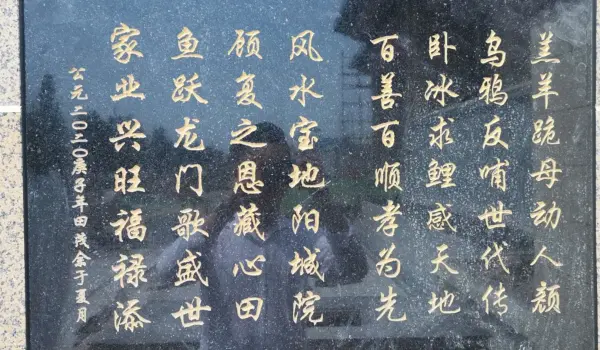 羔羊跪母动人颜
乌鸦反哺世代传
卧冰求鲤感天地
百善百顺孝为先
风水宝地阳城院
顾复之恩藏心田
鱼跃龙门歌盛世
家业兴旺福禄添
公元二〇二〇庚子年田浅余于夏月